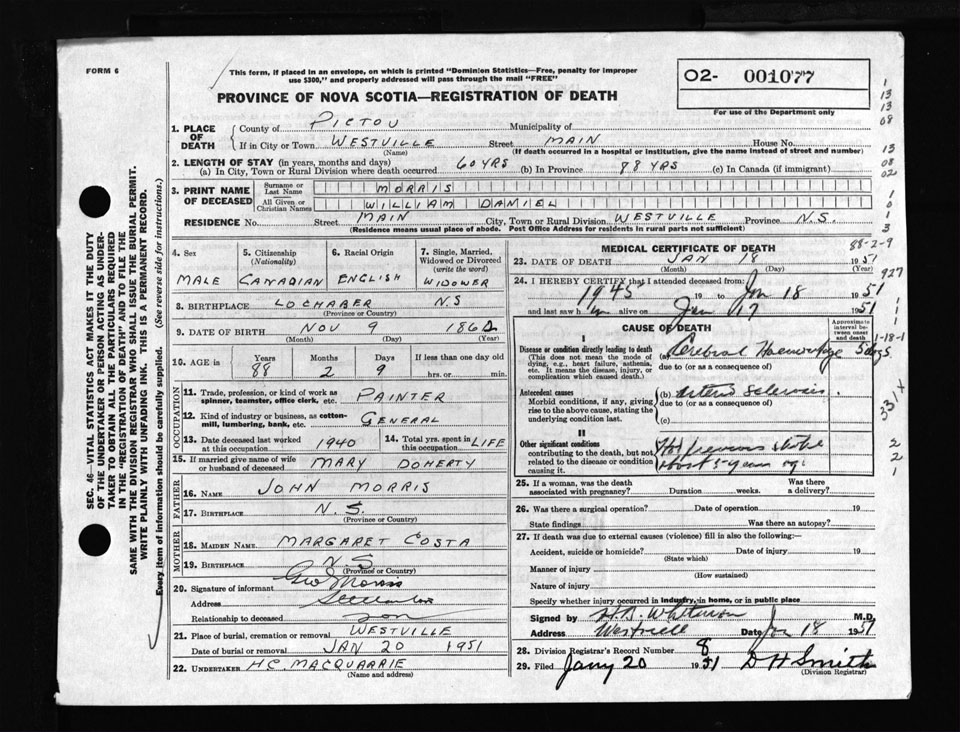 FORM 6
This form, if placed in an envelope, on which is printed "Dominion Statistics—Free, penalty for improper
use $300," and properly addressed will pass through the mail "FREE"
PROVINCE OF NOVA SCOTIA—REGISTRATION OF DEATH
O2- 001077
For use of the Department only
1. PLACE OF DEATH
County of PICTOU Municipality of
If in City or Town WESTVILLE Street MAIN House No.
(Name) (If death occurred in a hospital or institution, give the name instead of street and number)
2. LENGTH OF STAY (in years, months and days)
(a) In City, Town or Rural Division where death occurred 60 YRS (b) In Province 88 YRS (c) In Canada (if immigrant)
3. PRINT NAME OF DECEASED
Surname or Last Name MORRIS
All Given or Christian Names WILLIAM DANIEL
RESIDENCE No. Street MAIN City, Town or Rural Division WESTVILLE Province N.S.
(Residence means usual place of abode. Post Office Address for residents in rural parts not sufficient)
4. Sex 5. Citizenship (Nationality) 6. Racial Origin 7. Single, Married, Widowed or Divorced (write the word)
MALE CANADIAN ENGLISH WIDOWER
8. BIRTHPLACE LOCHABER N.S
(Province or Country)
9. DATE OF BIRTH NOV 9 1862
(Month) (Day) (Year)
10. AGE in Years Months Days If less than one day old
88 2 9 hrs. or min.
OCCUPATION
11. Trade, profession, or kind of work as spinner, teamster, office clerk, etc. PAINTER
12. Kind of industry or business, as cotton-mill, lumbering, bank, etc. GENERAL
13. Date deceased last worked at this occupation 1940 14. Total yrs. spent in this occupation LIFE
15. If married give name of wife or husband of deceased MARY DOHERTY
FATHER
16. NAME JOHN MORRIS
17. BIRTHPLACE N.S.
(Province or Country)
MOTHER
18. MAIDEN NAME MARGARET COSTA
19. BIRTHPLACE N.S
(Province or Country)
20. Signature of informant Geo J Morris
Address Stellarton
Relationship to deceased son
21. Place of burial, cremation or removal WESTVILLE
Date of burial or removal JAN 20 1951
22. UNDERTAKER H.C. MACQUARRIE
(Name and Address)
MEDICAL CERTIFICATE OF DEATH
23. DATE OF DEATH JAN 18 1951
(Month) (Day) (Year)
24. I HEREBY CERTIFY that I attended deceased from:
1945 19 to Jan 18 1951
and last saw h im alive on Jan 17 1951
CAUSE OF DEATH
Approximate interval between onset and death
I
Disease or condition directly leading to death (a) Cerebral Haemorrhage 5 days
(This does not mean the mode of dying, e.g., heart failure, asthenia, etc. It means the disease, injury, or complication which caused death.)
due to (or as a consequence of)
Antecedent causes (b) Arterio Sclerosis
Morbid conditions, if any, giving rise to the above cause, stating the underlying condition last.
due to (or as a consequence of)
(c)
II
Other significant conditions
contributing to the death, but not related to the disease or condition causing it.
25. If a woman, was the death associated with pregnancy? Duration weeks. Was there a delivery?
26. Was there a surgical operation? Date of operation 19
State findings Was there an autopsy?
27. If death was due to external causes (violence) fill in also the following:—
Accident, suicide or homicide? Date of injury 19
(State which)
Manner of injury
(How sustained)
Nature of injury
Specify whether injury occurred in industry, in home, or in public place
Signed by M.D.
Address Westville Date Jan 18 1951
28. Division Registrar's Record Number 8
29. Filed Jany 20 1951 D H Smith
(Division Registrar)
SEC. 46—VITAL STATISTICS ACT MAKES IT THE DUTY
OF THE UNDERTAKER OR PERSON ACTING AS UNDER-
TAKER TO OBTAIN ALL THE PARTICULARS REQUIRED
IN THE "REGISTRATION OF DEATH" AND TO FILE THE
SAME WITH THE DIVISION REGISTRAR WHO SHALL ISSUE THE BURIAL PERMIT.
WRITE PLAINLY WITH UNFADING INK. THIS IS A PERMANENT RECORD.
Every item of information should be carefully supplied. (See reverse side for instructions.)
1
13
13
08
13
08
02
1
0
1
3
88-2-9
927
1-18-1
331 X
2
2
1